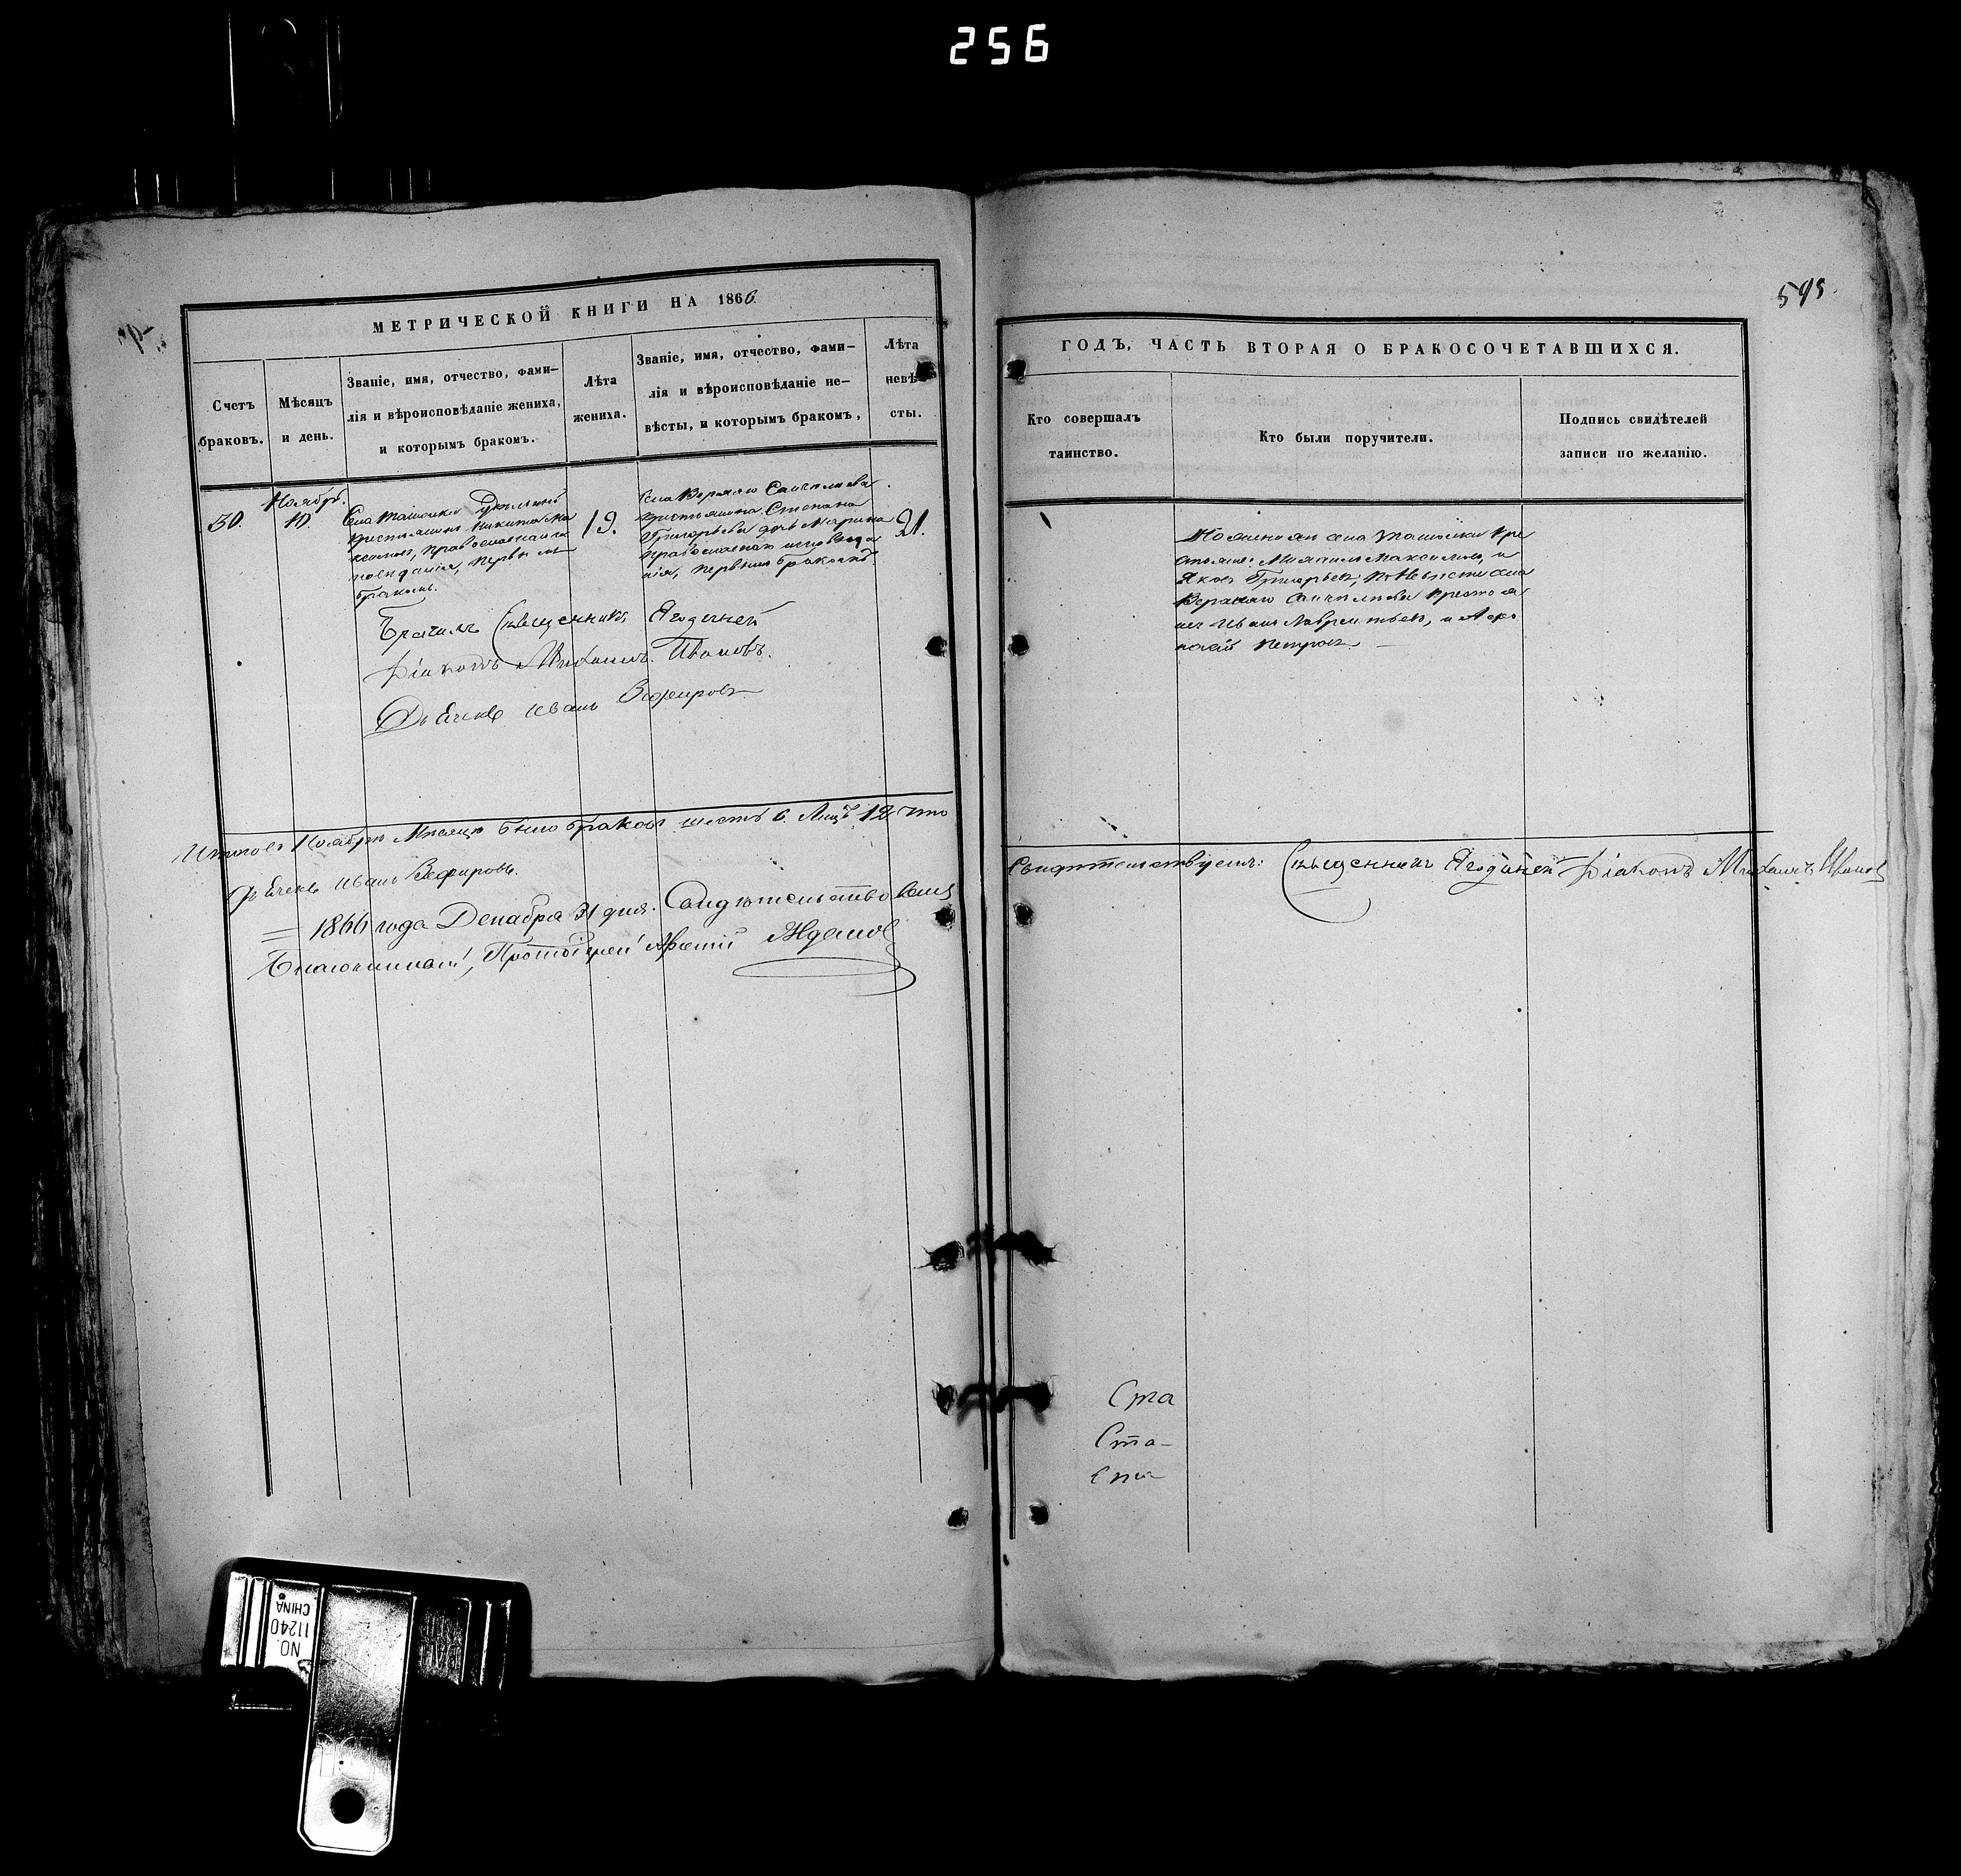 256
МЕТРИЧЕСКОЙ КНИГИ НА 1866
Счетъ браковъ.
Мѣсяцъ и день.
Званіе, имя, отчество, фами-
лія и вѣроисповѣданіе жениха,
и которымъ бракомъ.
Лѣта жениха.
Званіе, имя, отчество, фами-
лія и вѣроисповѣданіе не-
вѣсты, и которымъ бракомъ,
Лѣта
невѣ-
сты.
30.
Ноябрь.
10.
Села
крестьянинъ Никита Ма
православнаго ис
повѣданія, первымъ
бракомъ.
19.
Села
крестьянина Степана
Григорьева дочь Марина
православнаго исповѣда
нія, первымъ бракомъ.
21.
Бракъ Священникъ Ягодиней
Діаконъ Михаилъ Ивановъ.
Дьячекъ Иванъ Зефировъ
Итого въ Ноябрѣ Мѣсяцѣ было браковъ шесть 6. Лицъ 12 что
Дьячекъ Иванъ Зефировъ.
1866 года Декабря 31 дня. Свидѣтельствовалъ
Благочинный, Протоіерей Ждановъ
595.
ГОДЪ, ЧАСТЬ ВТОРАЯ О БРАКОСОЧЕТАВШИХСЯ.
Кто совершалъ
таинство.
Кто были поручители.
Подпись свидѣтелей
записи по желанію.
По женихѣ села кре
стьяне: Максимовъ, и
Яковъ Григорьевъ, по Невѣстѣ села
крестья
не Иванъ Лаврентьевъ, и
Петровъ.
Свидѣтельствуемъ: Священникъ Ягодиней Діаконъ Михаилъ Ивановъ
Ста
Ста-
NO.
11240
CHINA